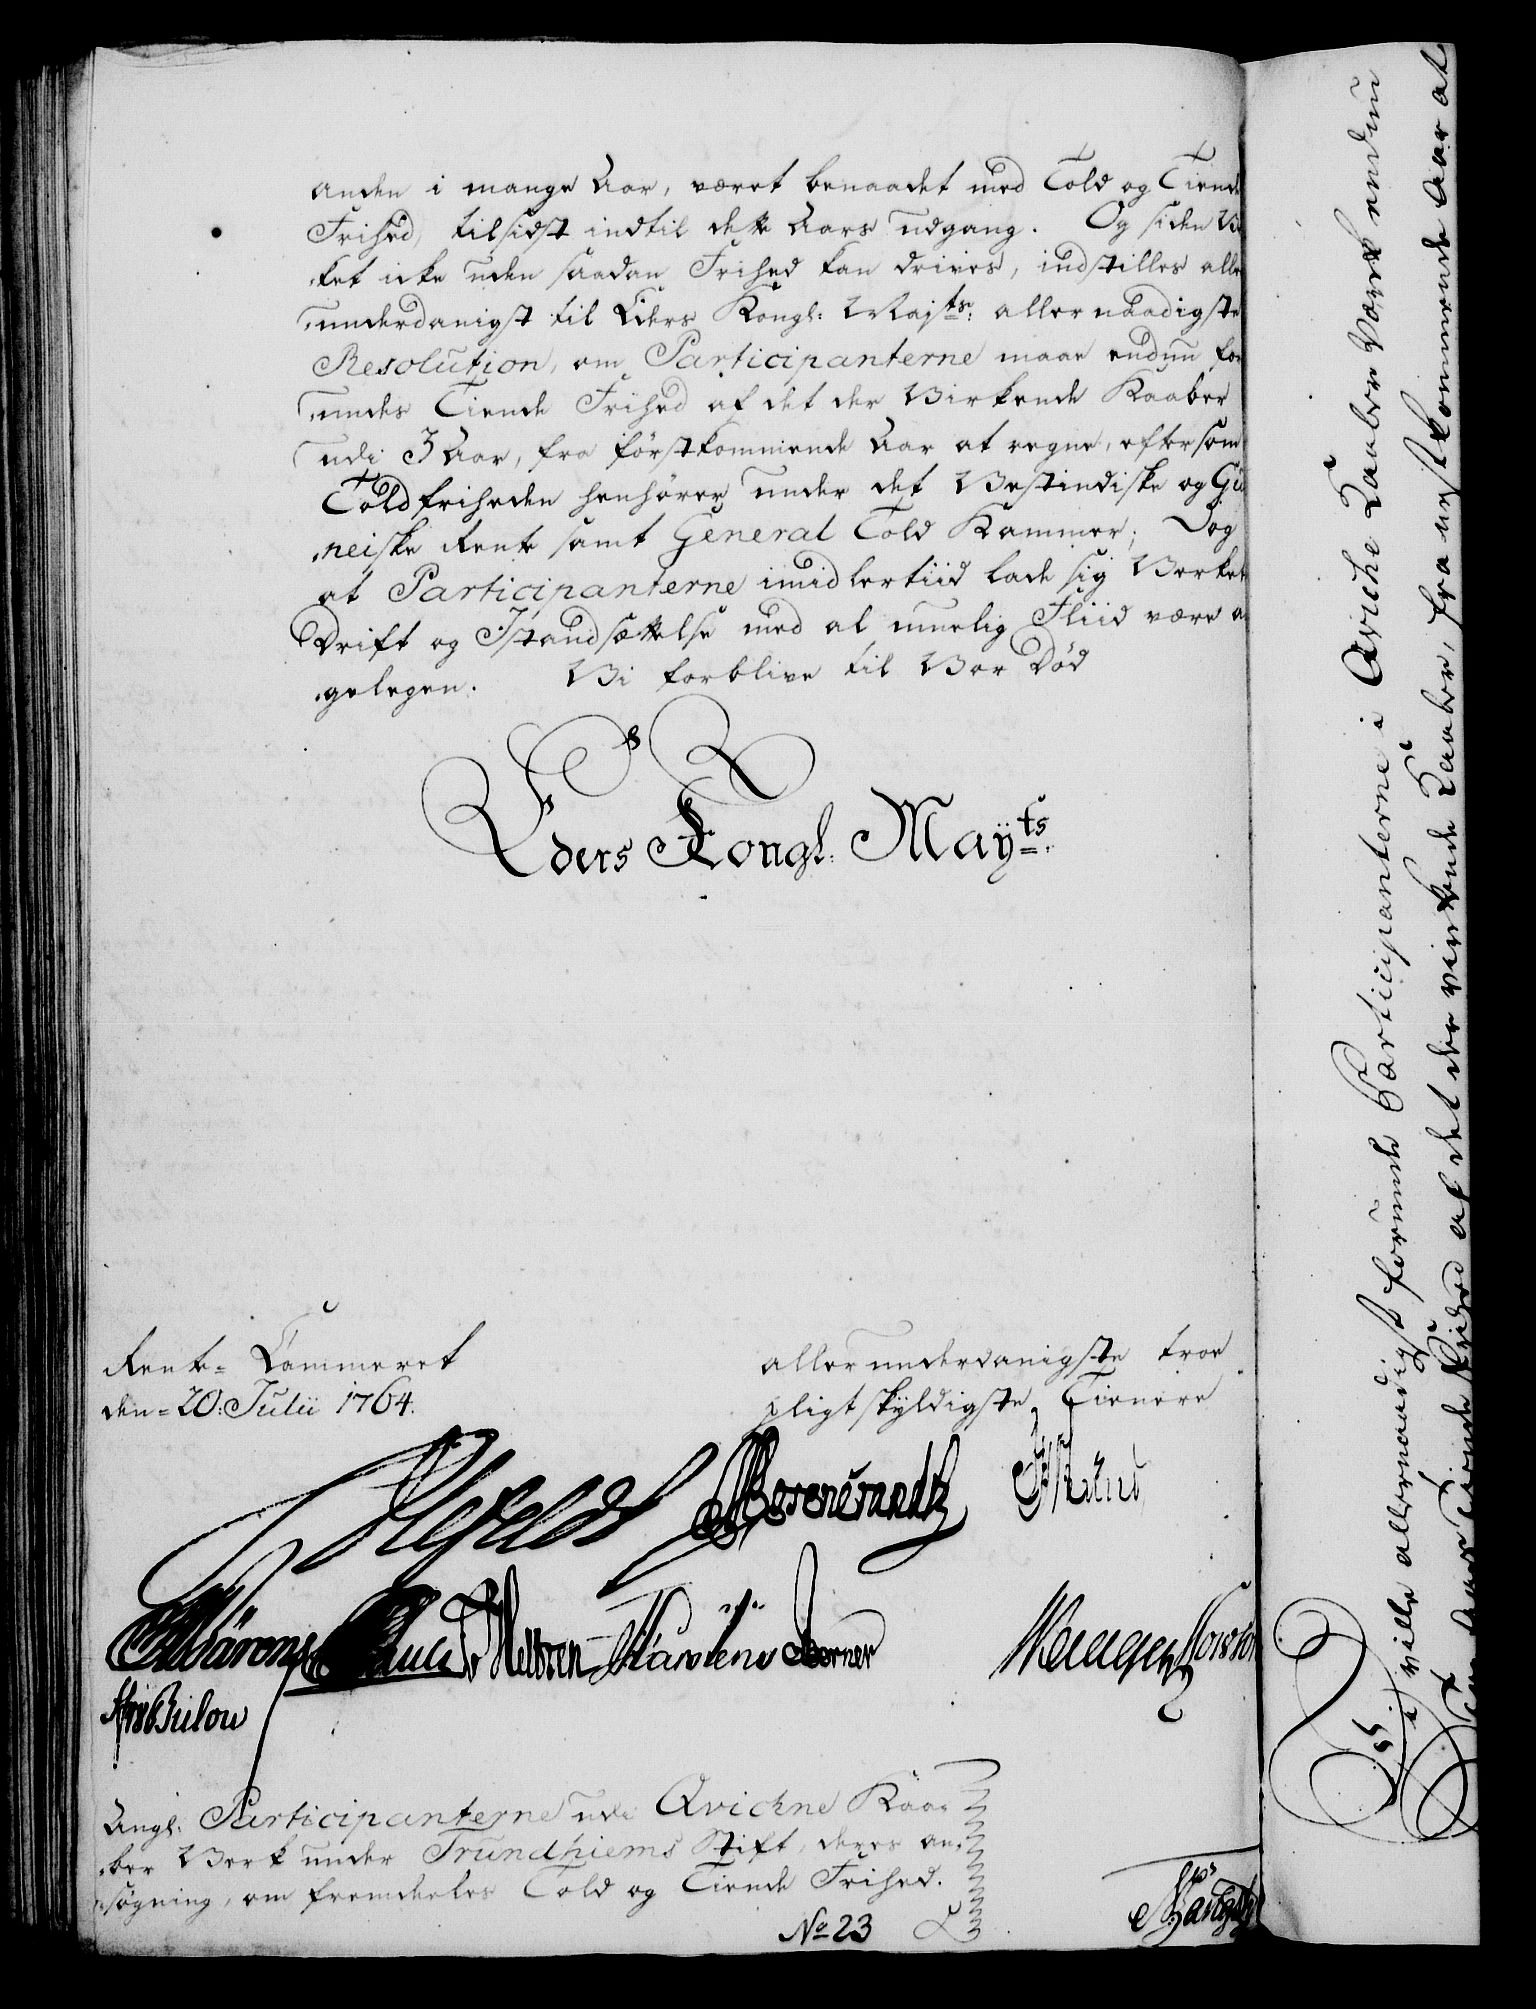 anden i mange Aar, været benaadet med Told og Tiende
Frihed, tilsidst indtil dette Aars udgang. Og siden
ket icke uden saadan Frihed kan drives, indstilles aller
underdanigst til Eders Kongl: Majts: allernaadigste
Resolution, om Participanterne maae endnu for
undes Tiende Frihed af det der Virkende Kaaber
udi 3 Aar, fra førstkommende Aar at regne, eftersom
Toldfriheden henhører under det Vestindiske og Gui
neiske Rente samt General Told Kammer; Dog
at Participanterne imidlertiid lade sig Verkets
Drift og Istandsættelse med al muelig Fliid være an
gelegen. Vi forblive til Vor Død
Eders Kongl. Mayts.
Rente-Cammeret
den 20: Julii 1764.
allerunderdanigste troe
pligtskyldigste Tienere
Bülow
Angl: Participanterne udi Qvickne Kaa-
ber Verk under Trundhiems Stift, deres an-
søgning, om fremdeeles Told og Tiende Frihed.
No 23
Vi ville allernaadigst forunde Participanterne i Qvickne Kaaber Værk endnu
Aars Tiende Frihed af det der virkende Kaaber, fra nestkommende Aar at